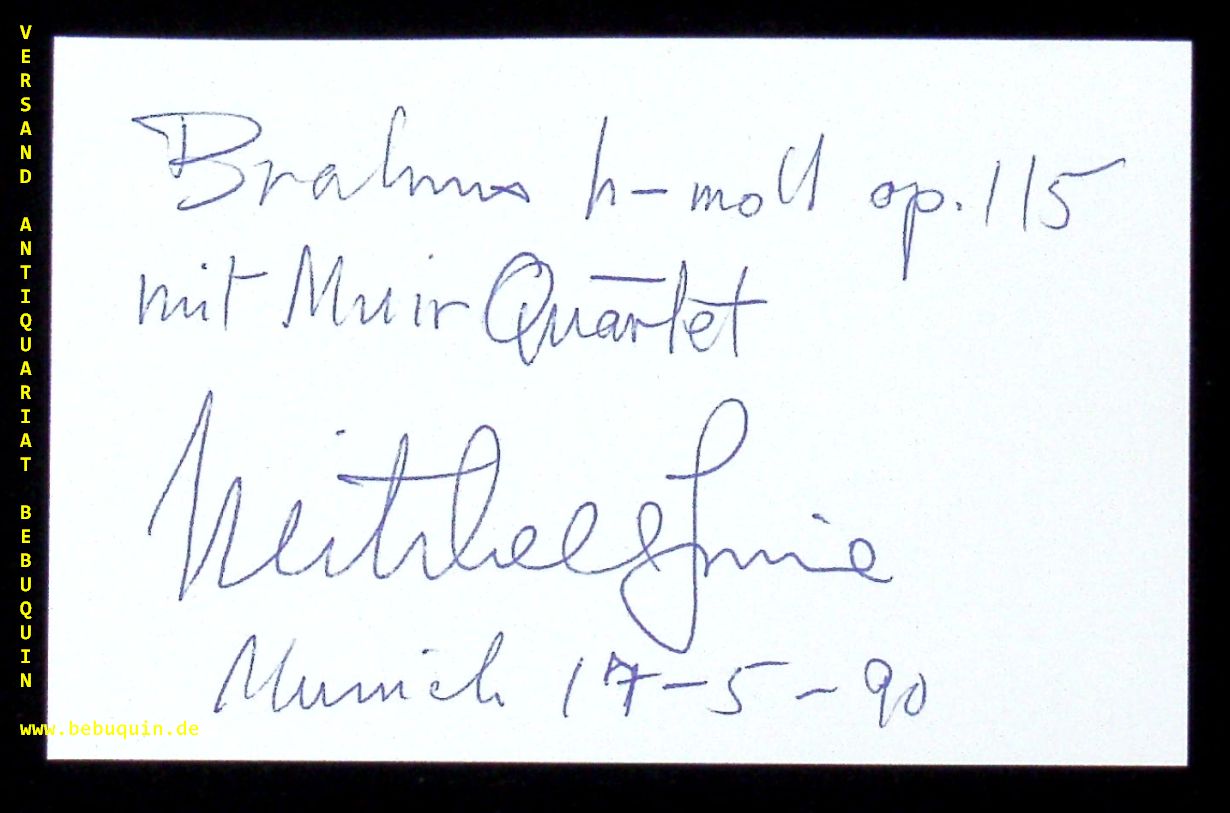 VERSAND ANTIQUARIAT BEBUQUIN
Brahms h-moll op. 115
mit Muir Quartet
Munich 17-5-90
www.bebuquin.de